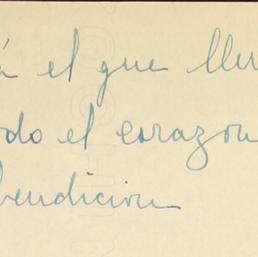 á el que lle
do el corazon
bendicion